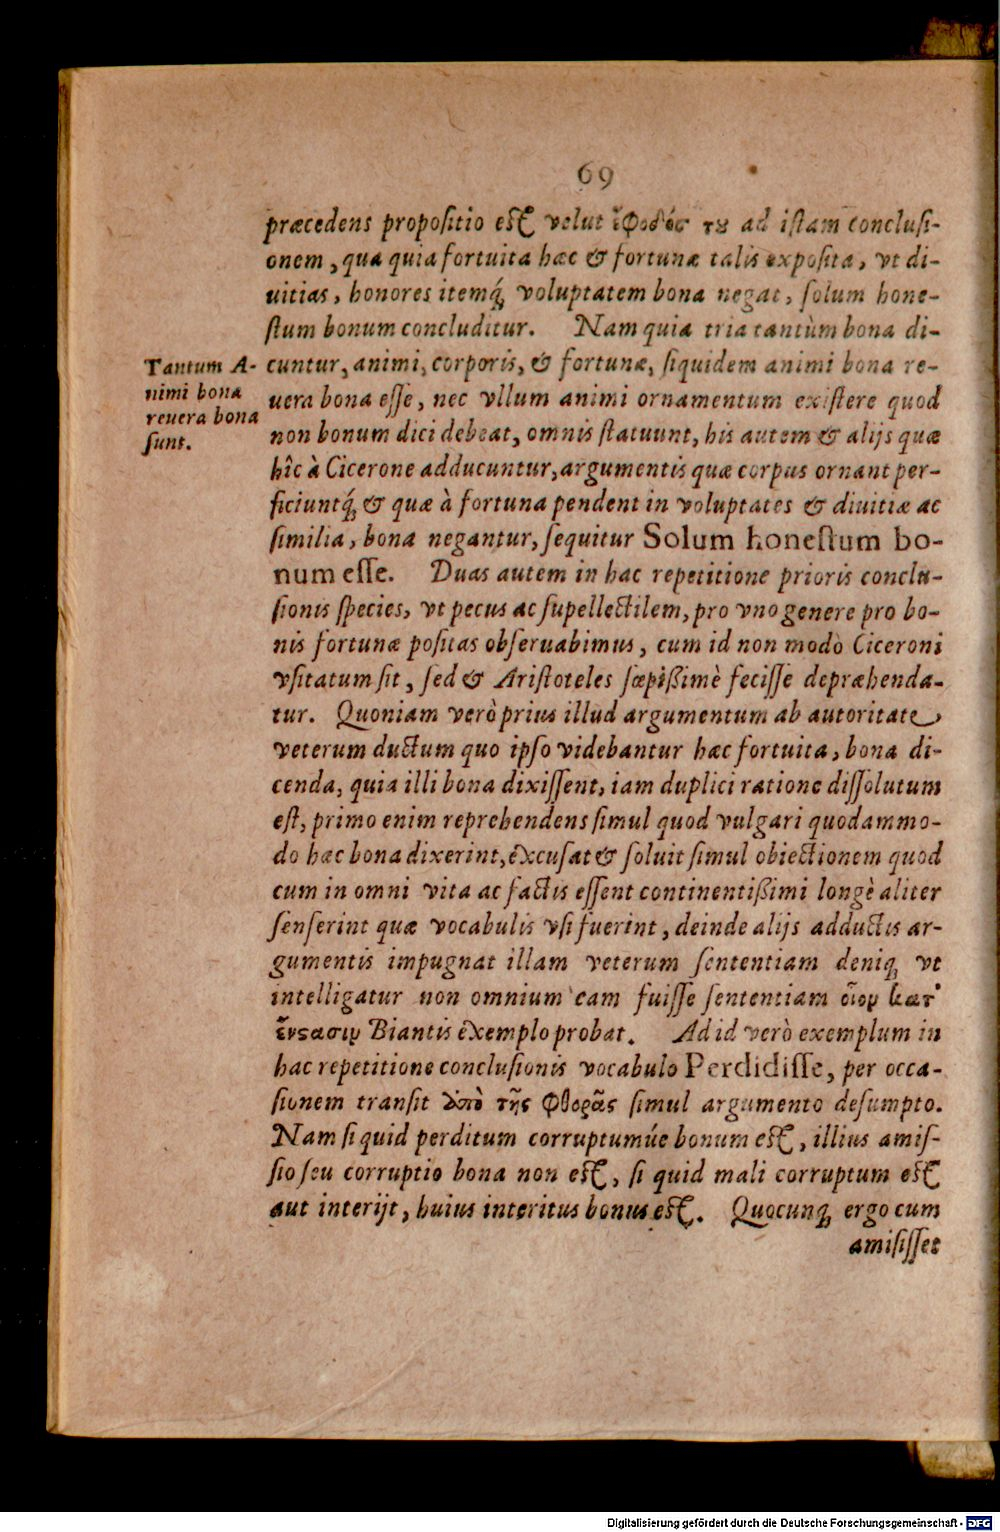 69
præcedens propositio est velut ἔφοδός τȣ ad istam conclusi-
onem, qua quia fortuita hæc & fortunæ talis exposita, vt di-
uitias, honores itemq́; voluptatem bona negat, solum hone-
stum bonum concluditur. Nam quia tria tantùm bona di-
cuntur, animi, corporis, & fortunæ, siquidem animi bona re-
uera bona esse, nec vllum animi ornamentum existere quod
non bonum dici debeat, omnis statuunt, his autem & alijs quæ
hîc à Cicerone adducuntur, argumentis quæ corpus ornant per-
ficiuntq́; & quæ à fortuna pendent in voluptates & diuitiæ ac
similia, bona negantur, sequitur Solum honestum bo-
num esse. Duas autem in hac repetitione prioris conclu-
sionis species, vt pecus ac supellectilem, pro vno genere pro bo-
nis fortunæ positas obseruabimus, cum id non modò Ciceroni
vsitatum sit, sed & Aristoteles sæpißimè fecisse depræhenda-
tur. Quoniam verò prius illud argumentum ab autoritate
veterum ductum quo ipso videbantur hæc fortuita, bona di-
cenda, quia illi bona dixissent, iam duplici ratione dissolutum
est, primo enim reprehendens simul quod vulgari quodammo-
do hæc bona dixerint, excusat & soluit simul obiectionem quod
cum in omni vita ac factis essent continentißimi longè aliter
senserint quæ vocabulis vsi fuerint, deinde alijs adductis ar-
gumentis impugnat illam veterum sententiam deniq; vt
intelligatur non omnium eam fuisse sententiam οἷον κατ'
ἔνστασιν Biantis exemplo probat. Ad id verò exemplum in
hac repetitione conclusionis vocabulo Perdidisse, per occa-
sionem transit ἀπὸ τῆς φθορᾶς simul argumento desumpto.
Nam si quid perditum corruptumúe bonum est, illius amis-
sio seu corruptio bona non est, si quid mali corruptum est
aut interijt, huius interitus bonus est. Quocunq; ergo cum
amisisset
Tantum A-
nimi bona
reuera bona
sunt.
Digitalisierung gefördert durch die Deutsche Forschungsgemeinschaft - DFG